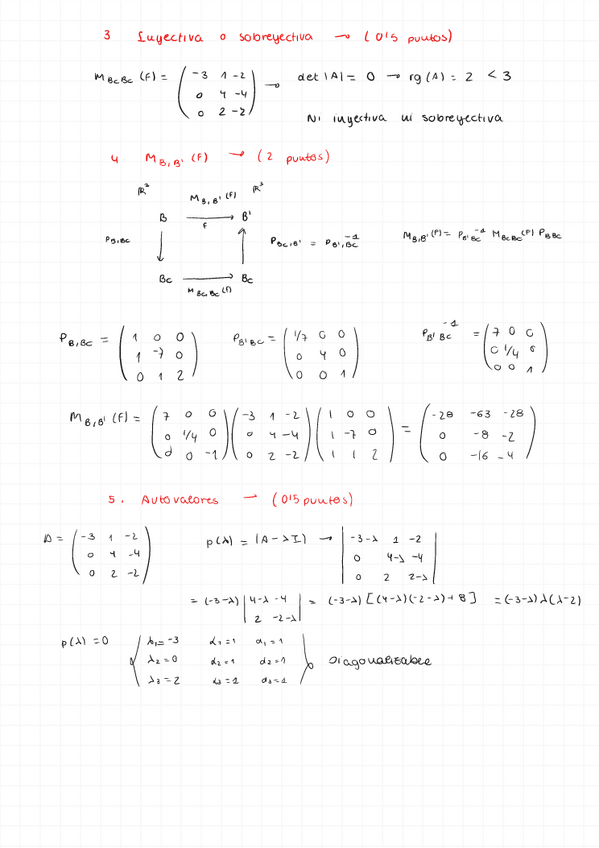 3 Inyectiva o sobreyectiva → (0'5 puntos)
M_{BcBc}(F) = ( -3 1 -2 ; 0 4 -4 ; 0 2 -2 ) → det |A| = 0 → rg(A) = 2 < 3
Ni inyectiva ni sobreyectiva
4 M_{B,B'}(F) → (2 puntos)
ℝ³ M_{B,B'}(F) ℝ³
B → B'
F
P_{B,Bc} P_{Bc,B'} = P_{B',Bc}^{-1} M_{B,B'}(F) = P_{B'Bc}^{-1} M_{BcBc}(F) P_{BBc}
Bc → Bc
M_{Bc,Bc}(F)
P_{B,Bc} = ( 1 0 0 ; 1 -7 0 ; 0 1 2 ) P_{B'Bc} = ( 1/7 0 0 ; 0 4 0 ; 0 0 1 ) P_{B'Bc}^{-1} = ( 7 0 0 ; 0 1/4 0 ; 0 0 1 )
M_{B,B'}(F) = ( 7 0 0 ; 0 1/4 0 ; 0 0 -1 ) ( -3 1 -2 ; 0 4 -4 ; 0 2 -2 ) ( 1 0 0 ; 1 -7 0 ; 1 1 2 ) = ( -28 -63 -28 ; 0 -8 -2 ; 0 -16 -4 )
5. Autovalores → (0'5 puntos)
A = ( -3 1 -2 ; 0 4 -4 ; 0 2 -2 ) p(λ) = |A - λI| → | -3-λ 1 -2 ; 0 4-λ -4 ; 0 2 2-λ |
= (-3-λ) | 4-λ -4 ; 2 -2-λ | = (-3-λ) [(4-λ)(-2-λ)+8] = (-3-λ)λ(λ-2)
p(λ) = 0 λ₁ = -3 α₁ = 1 d₁ = 1
λ₂ = 0 α₂ = 1 d₂ = 1 Diagonalizable
λ₃ = 2 α₃ = 1 d₃ = 1